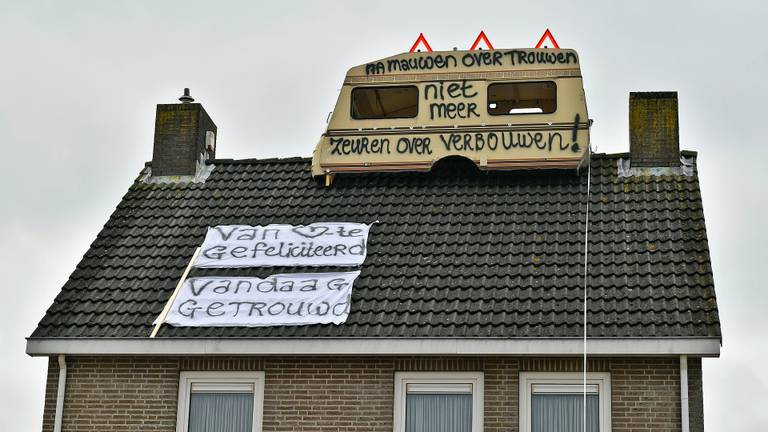 NA MAUWEN OVER TROUWEN
niet
MEER
ZEUREN OVER VERBOUWEN!
Van ♡-te
GEFELICITEERD
VANDAAG
GETROUWD